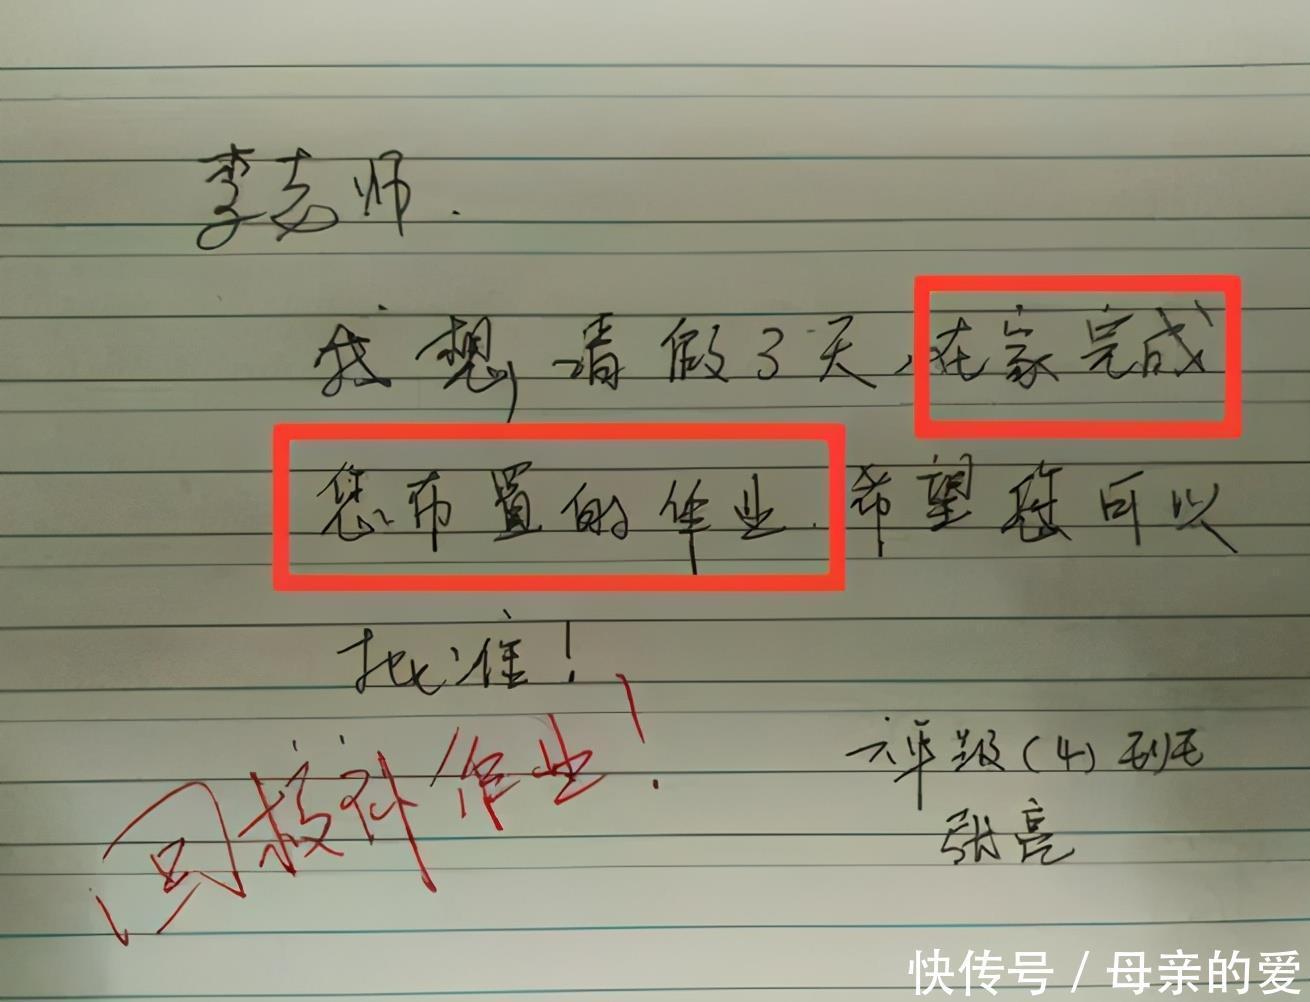 李老师.
我想,请假3天,在家完成
您布置的作业.希望您可以
批准!
回校补作业!
六年级(4)班
张亮
快传号/母亲的爱